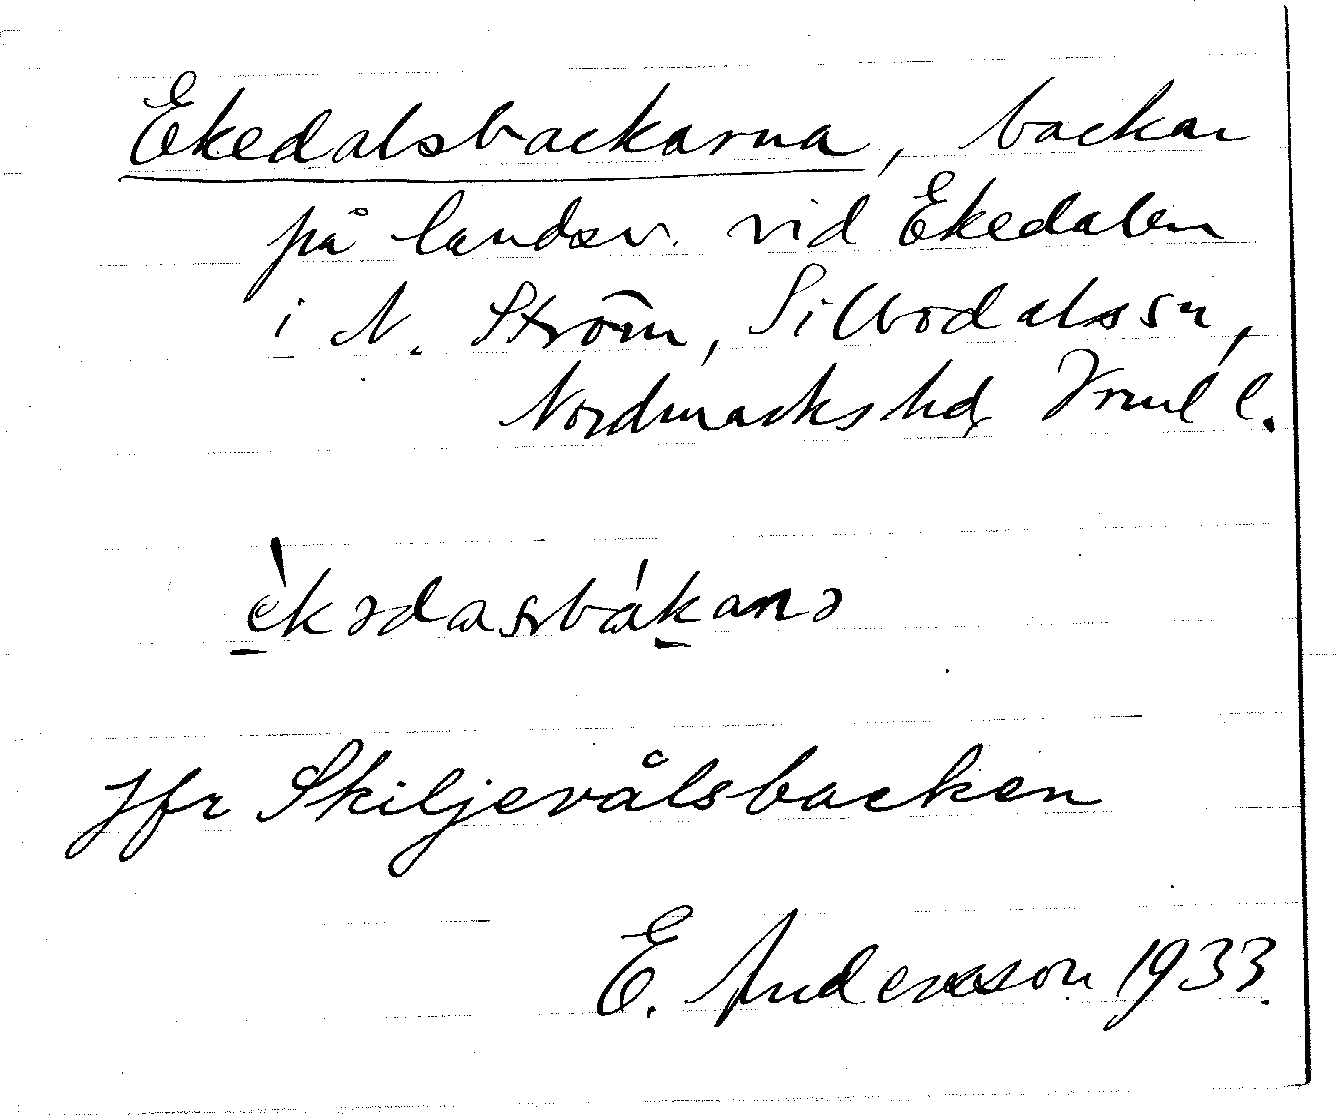 Ekedalsbackarna, backar
på landsv. vid Ekedalen
i N. Ström, Silbodalssn,
Nordmarkshd Vrml l.
èkədasbákanə
Jfr Skiljevålsbacken
E. Andersson 1933.